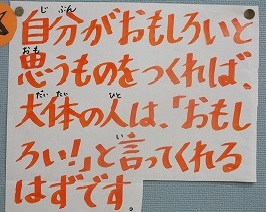 自分がおもしろいと
思うものをつくれば、
大体の人は、「おもし
ろい!」と言ってくれる
はずです。